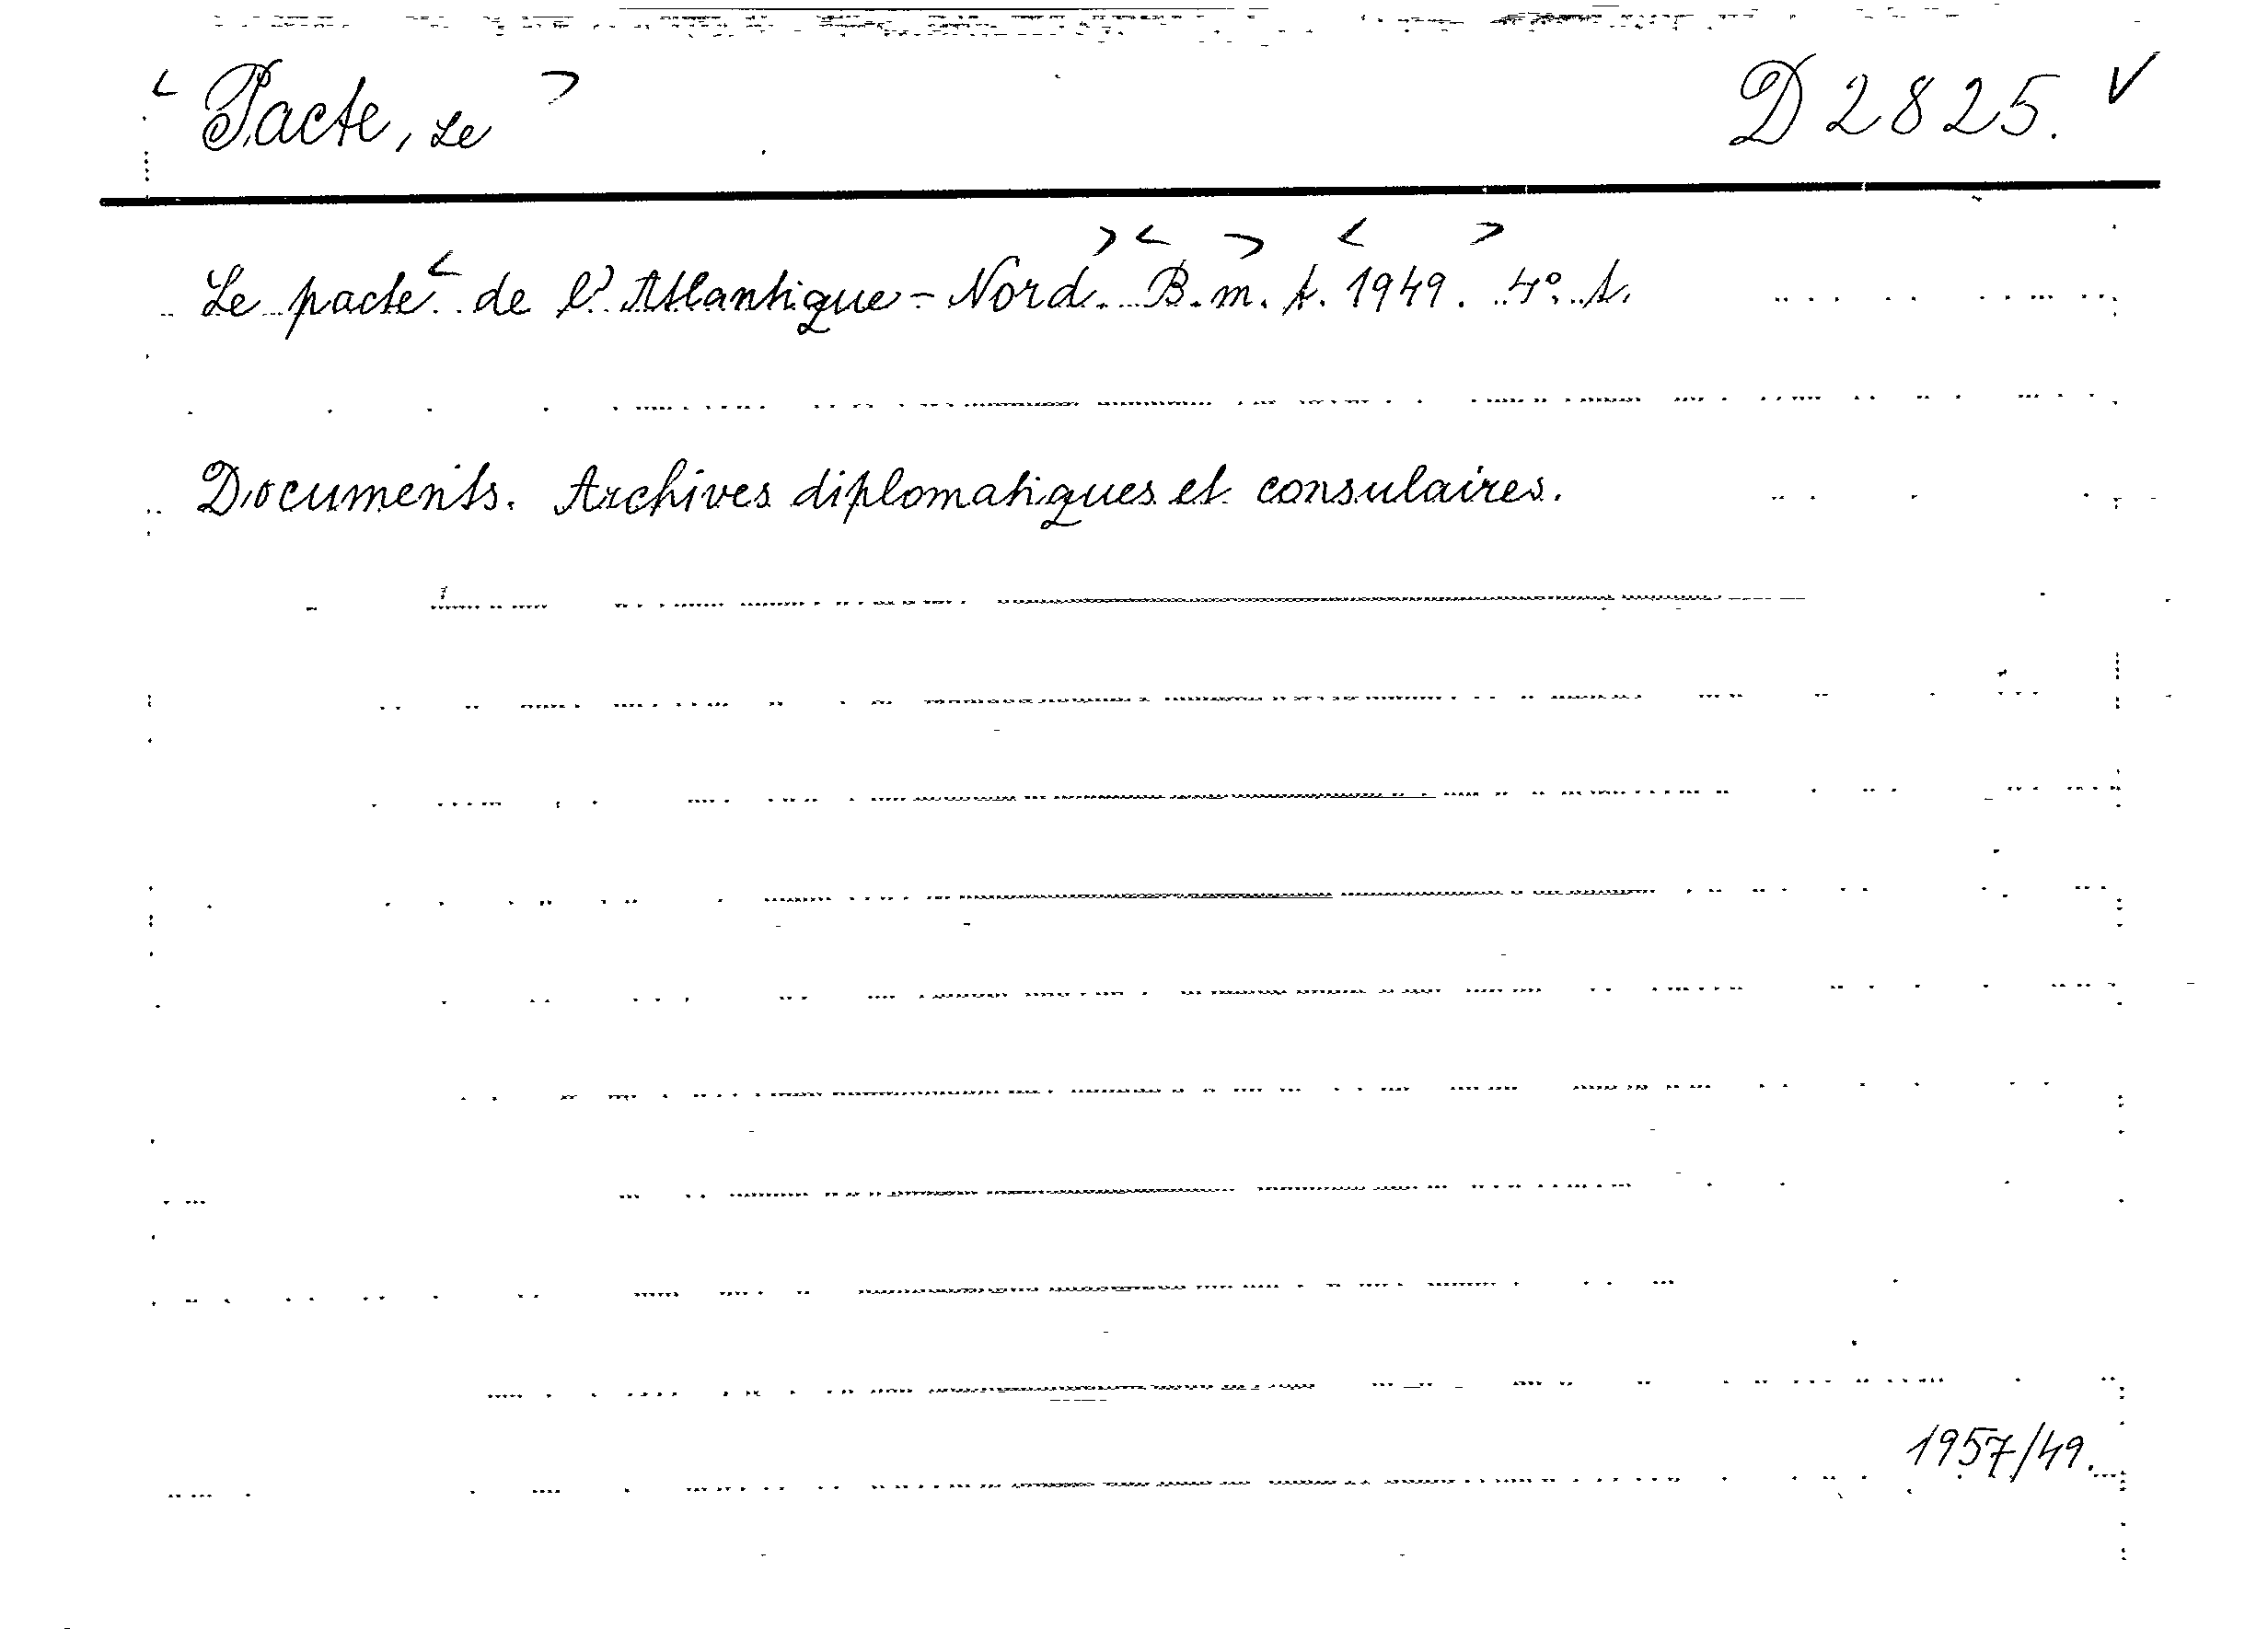 < Pacte, Le > D 2825. V
Le pacte < de l'Atlantique-Nord. > < B. m. > t. < 1949. > 4°. s.
Documents. Archives diplomatiques et consulaires.
1957/49.